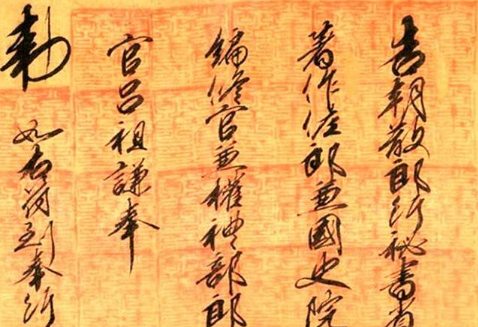 告朝散郎行秘書省
著作佐郎兼國史院
編修官兼權禮部郎
官呂祖謙奉
勅
如右符到奉行